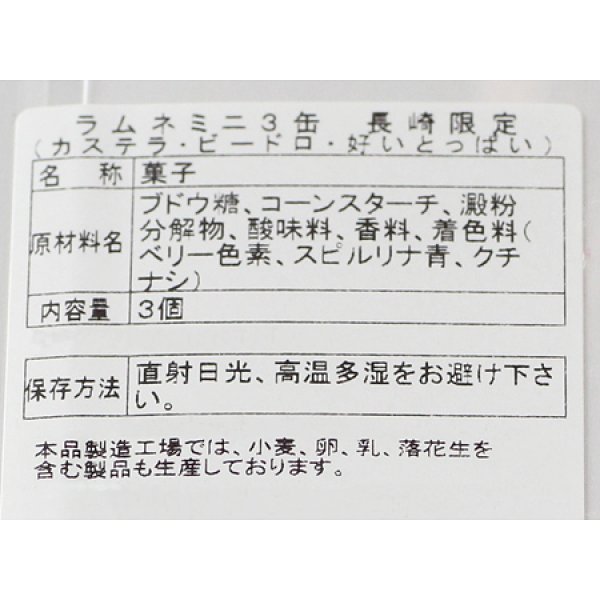 ラムネミニ3缶　長崎限定
(カステラ・ビードロ・好いとっぱい)
名　称 菓子
原材料名 ブドウ糖、コーンスターチ、澱粉
分解物、酸味料、香料、着色料(
ベリー色素、スピルリナ青、クチ
ナシ)
内容量 3個
保存方法 直射日光、高温多湿をお避け下さ
い。
本品製造工場では、小麦、卵、乳、落花生を
含む製品も生産しております。